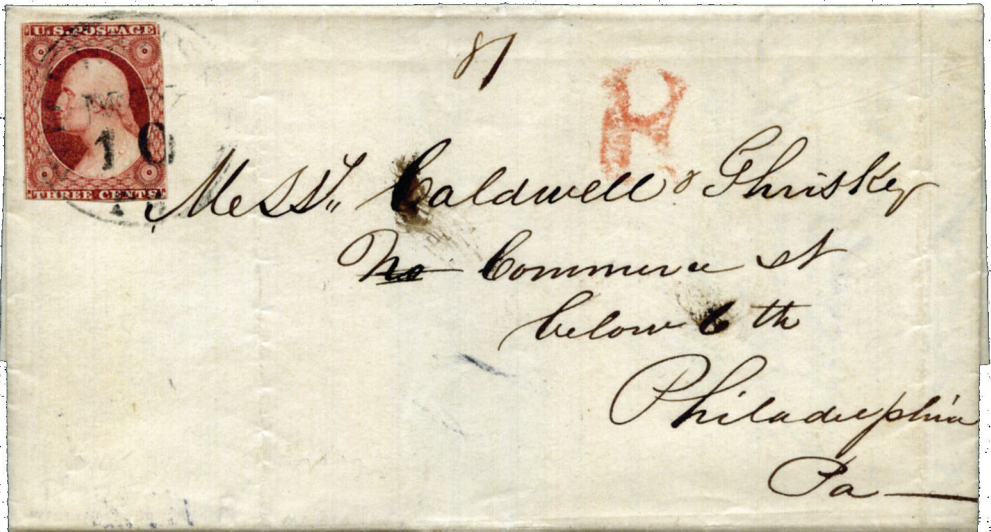 U.S. POSTAGE
THREE CENTS
10
81
R
Messrs. Caldwell &
No Commerce st
below 6th
Philadelphia
Pa